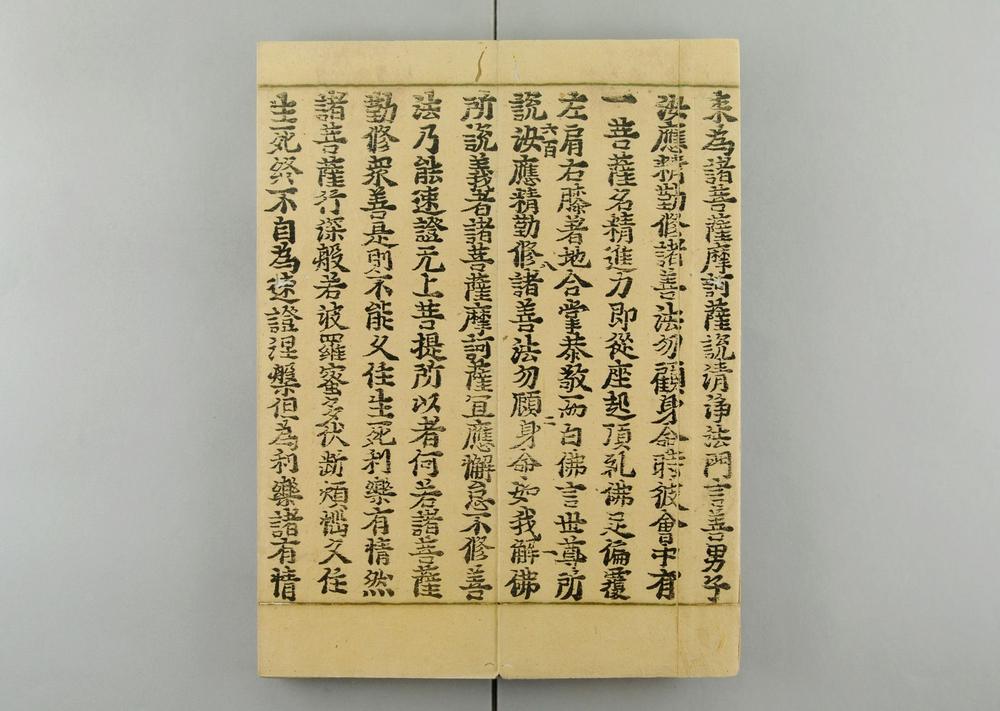 来為諸菩薩摩訶薩說清淨法門言善男子
汝應精勤修諸善法勿顧身命時彼會中有
一菩薩名精進力即從座起頂礼佛足偏覆
左肩右膝著地合掌恭敬而白佛言世尊所
說汝應精勤修諸善法勿顧身命如我解佛
六百 八 二 一
所說義者諸菩薩摩訶薩宜應懈怠不修善
法乃能速證无上菩提所以者何若諸菩薩
勤修衆善是則不能久住生死利樂有情然
諸菩薩行深般若波羅蜜多伏断煩惱久住
生死終不自為速證涅槃但為利樂諸有情